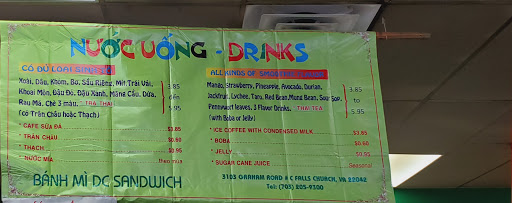 NƯỚC UỐNG - DRINKS
CÓ ĐỦ LOẠI SINH TỐ
Xoài, Dâu, Khóm, Bơ, Sầu Riêng, Mít, Trái Vải,
Khoai Môn, Đậu Đỏ, Đậu Xanh, Mãng Cầu, Dừa,
Rau Má, Chè 3 màu, TRÀ THÁI
(có Trân Châu hoặc Thạch)
3.85
đến
5.95
* CAFE SỮA ĐÁ $3.85
* TRÂN CHÂU $0.60
* THẠCH $0.95
* NƯỚC MÍA theo mùa
ALL KINDS OF SMOOTHIE
Mango, Strawberry, Pineapple, Avocado, Durian,
Jackfruit, Lychee, Taro, Red Bean, Mung Bean, Sour Sop,
Pennywort leaves, 3 Flavor Drinks, THAI TEA
(with Boba or Jelly)
3.85
to
5.95
* ICE COFFEE WITH CONDENSED MILK $3.85
* BOBA $0.60
* JELLY $0.95
* SUGAR CANE JUICE Seasonal
BÁNH MÌ DC SANDWICH
3103 GRAHAM ROAD # C FALLS CHURCH, VA 22042
Tel: (703) 205-9300